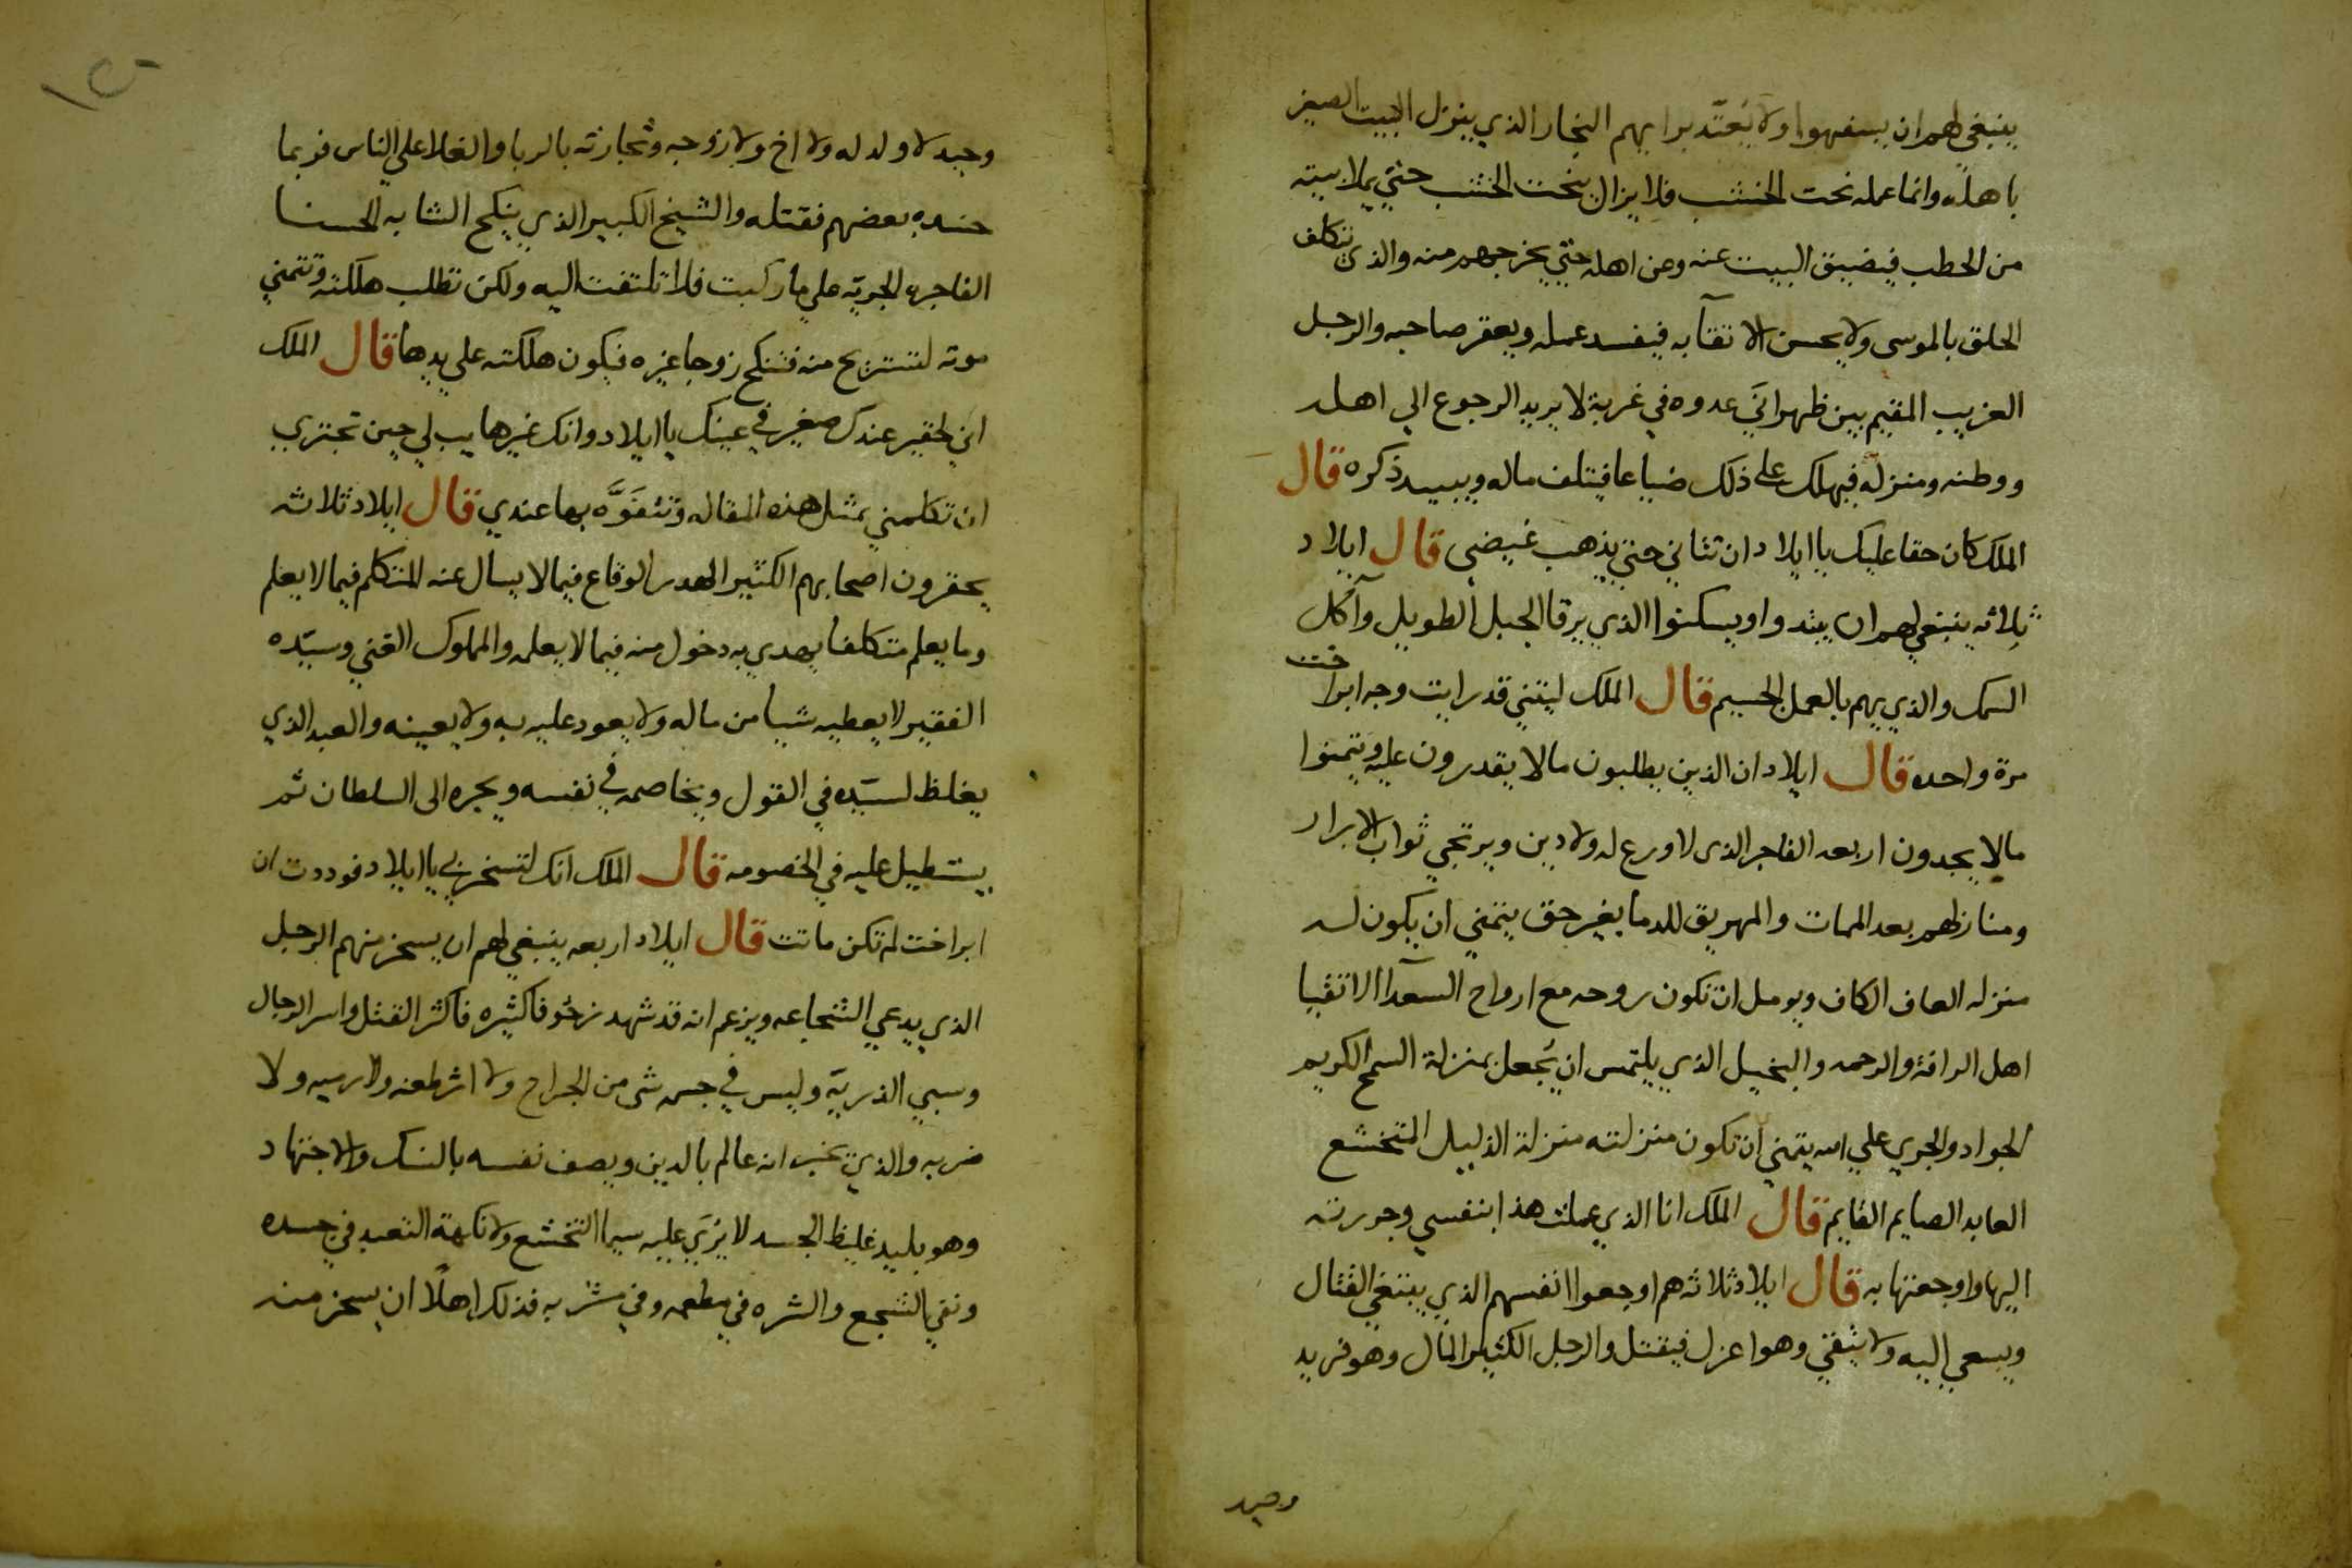 ينبغي لهم ان يسفهوا ولا يعتد برايهم النجار الذي ينزل البيت الصغير
باهله وانما عمله نحت الخشب فلا يزال ينحت الخشب حتي يملا بيته
من الحطب فيضيق البيت عنه وعن اهله حتي يخرجهم منه والذي تكلف
الحلق بالموسى ولا يحسن الا تقآبه فيفسد عمله ويعقر صاحبه والرجل
الغريب المقيم بين ظهراني عدوه في غربة لا يريد الرجوع الي اهله
ووطنه ومنزله فيهلك على ذلك ضياعا فيتلف ماله ويبيد ذكره قال
الملك كان حقا عليك يا ايلاد ان تثاني حتي يذهب غيضي قال ايلاد
ثلاثه ينبغي لهم ان يتدوا ويسكنوا الذي يرقا الجبل الطويل وآكل
السمك والذي يهم بالعمل الجسيم قال الملك ليتني قد رايت وجه ابراخت
مرة واحده قال ايلاد ان الذين يطلبون مالا يقدرون عليه ويتمنوا
مالا يجدون اربعه الفاجر الذى لا ورع له ولا دين ويرتجي ثواب الابرار
ومنازلهم بعد الممات والمهريق للدما بغير حق يتمني ان يكون له
منزله العاف الكاف ويومل ان تكون روحه مع ارواح السعدآ الاتقيا
اهل الرافة والرحمه والبخيل الذي يلتمس ان يجعل بمنزلة السمح الكريم
الجواد والجري علي الله يتمني ان تكون منزلته منزلة الذليل المتخشع
العابد الصايم القايم قال الملك انا الذي عملت هذا بنفسي وجررته
اليها واوجعتها به قال ايلاد ثلاثه هم اوجعوا انفسهم الذي يبتغي القتال
ويسعي اليه ولا يتقي وهو اعزل فيقتل والرجل الكثير المال وهو فريد
وحيد
١٥٠
وحيد لا ولد له ولا اخ ولا زوجه وتجارته بالربا والغلا علي الناس فربما
حسده بعضهم فقتله والشيخ الكبير الذي ينكح الشابه الحسنا
الفاجره الجريّه علي ما ركبت فلا تلتفت اليه ولكن تطلب هلكته وتتمني
موته لتستريح منه فتنكح زوجا غيره فيكون هلكته علي يدها قال الملك
اني لحقير عندك صغير في عينك يا ايلاد وانك غير هايب لي حين تجتري
ان تكلمني بمثل هذه المقاله وتتفوَّه بها عندي قال ايلاد ثلاثه
يحقرون اصحابهم الكثير الهدر الوقاع فيما لا يسال عنه المتكلم فيما لا يعلم
وما يعلم متكلفا يهدي به دخول منه فيما لا يعلمه والمملوك الغني وسيّده
الفقير لا يعطيه شيا من ماله ولا يعود عليه به ولا يعينه والعبد الذي
يغلظ لسيّده في القول ويخاصمه في نفسه ويجره الى السلطان ثم
يستطيل عليه في الخصومه قال الملك انك لتسخر بي يا ايلاد فوددت ان
ابراخت لم تكن ماتت قال ايلاد اربعه ينبغي لهم ان يسخر منهم الرجل
الذي يدعي الشجاعه ويزعم انه قد شهد زحوفا كثيره فاكثر القتل واسر الرجال
وسبي الذريّة وليس في جسمه شى من الجراح ولا اثر طعنه ولا رميه ولا
ضربه والذي يخبر انه عالم بالدين ويصف نفسه بالنسك والاجتهاد
وهو بليد غليظ الجسد لا يري عليه سيما التخشع ولا نكهة التعبد في جسده
ونقي الشجع والشره في مطعمه وفي مشربه فذلك اهلًا ان يسخر منه